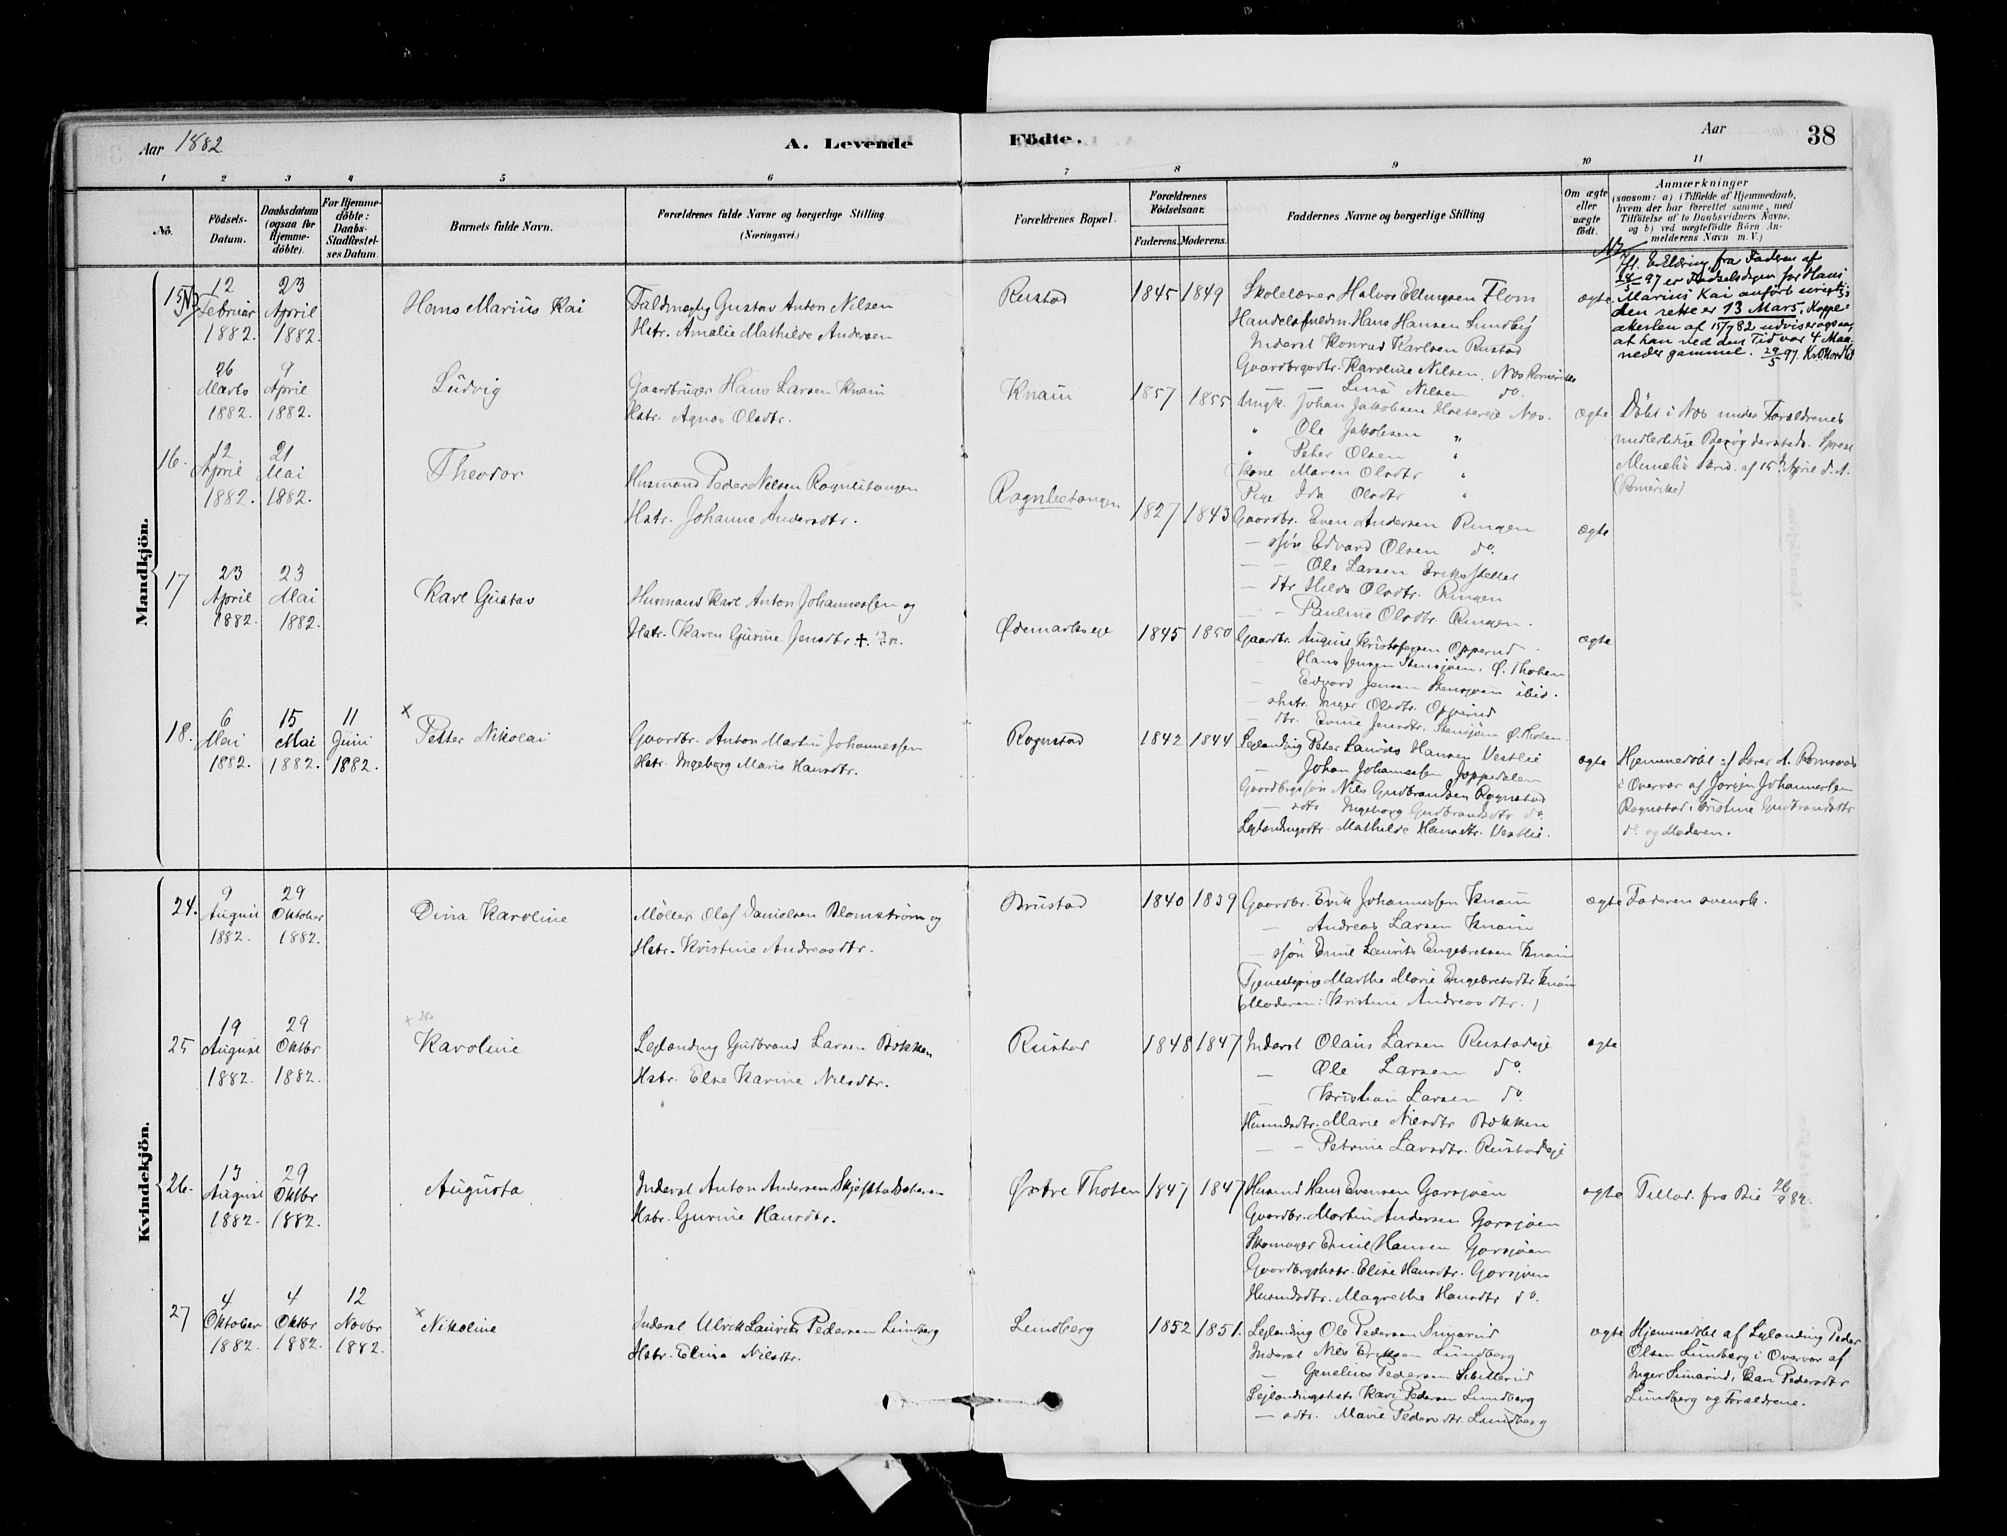 Aar 1882
A. Levende
Födte.
Aar
38
1 2 3 4 5 6 7 8 9 10 11
No.
Födsels-Datum.
Daabsdatum (ogsaa for Hjemme-döbte).
For Hjemme-döbte: Daabs-Stadfæstel-ses Datum.
Barnets fulde Navn.
Forældrenes fulde Navne og borgerlige Stilling
(Næringsvei.)
Forældrenes Bopæl.
Forældrenes Födselsaar.
Faderens. Moderens.
Faddernes Navne og borgerlige Stilling
Om ægte eller uægte födt.
Anmærkninger
(saasom: a) i Tilfælde af Hjemmedaab,
hvem der har forrettet samme, med
Tilföielse af to Daabsvidners Navne,
og b) ved uægtefödte Börn An-
melderens Navn m. V.)
Mandkjön.
15
12 Februar 1882
23 April 1882.
Hans Marius Kai
Gustav Anton Nilsen
Hstr. Amalie Mathilde Andersen
Rustad
1845 1849
Skolelærer Halvor Ellingsen Flom
Hans Hansen Sundby
Inderst Konrad Karlsen Rustad
Karoline Nilsen, Nes Romerike
Nilsen do.
ægte
Erklæring fra Faderen af
er Fødselsdagen for Hans
Marius Kai anført urigtig;
den rette er 13 Mars. Koppe-
attesten af 15/7 82 udviser ogsaa,
at han ved den Tid var 4 Maa-
neder gammel. 29/5 97.
26 Marts 1882.
9 April 1882.
Ludvig
Gaardbruger Hans Larsen Knain
Hstr. Agnes Olsdtr.
Knain
1857 1855
Ungk. Johan Jakobsen Nes.
" Ole Jakobsen "
" Peter Olsen "
Kone Maren Olsdtr "
Pige Ida Olsdtr "
ægte
Døbt i Nes under Forældrenes
midlertidige Besøg dersteds.
af 15 April d. A.
(Romerike)
16.
12 April 1882.
21 Mai 1882.
Theodor
Husmand Peder Nilsen Rognlitangen
Hstr. Johanne Andersdtr.
Rognlietangen
1827 1843
Gaardbr. Even Andersen Ringen
— ssøn Edvard Olsen do.
— — Ole Larsen
— dtr Hilda Olsdtr. Ringen
— — Pauline Olsdtr Ringen.
ægte
17
23 April 1882.
23 Mai 1882.
Karl Gustav
Husmand Karl Anton Johannessen og
Hstr. Karen Gurine Jensdtr. †
Ødemarkseje
1845 1850
Gaardbr. August Kristofersen Opperud
Hans Jensen Stensjøen, Ø. Thoten
— Edvard Jensen Stensjøen ibid.
Inger Olsdtr. Opperud
— dtr. Jensdtr. Stensjøen Ø. Thoten.
ægte
18.
6 Mai 1882.
15 Mai 1882.
11 Juni 1882.
x
Petter Nikolai
Gaardbr. Anton Martin Johannessen
Hstr. Ingeborg Marie Hansdtr.
Rognstad
1842 1844
Lejlending Peter Laurits Hansen Vestlie
— Johan Johannessen Joppedalen
Gaardbrgssøn Nils Gudbrandsen Rognstad
— sdtr Ingeborg Gudbrandsdtr do.
Lejlendingsdtr. Mathilde Hansdtr. Vestlie.
ægte
Hjemmedøbt af Lærer A. Romsaas
i Overvær af Jørgen Johannessen
Rognstad, Kristine Gudbrandsdtr
do. og Moderen.
Kvindekjön.
24.
9 August 1882.
29 Oktober 1882.
Dina Karoline
Møller Olof Danielsen Blomstrøm og
Hstr. Kristine Andreasdtr.
Brustad
1840 1839
Gaardbr. Erik Johannessen Knain
— Andreas Larsen Knain
— ssøn Emil Laurits Engebretsen Knain
Tjenestepige Marthe Marie Engebretsdtr Knain
(Moderen: Kristine Andreasdtr.)
ægte
Faderen svensk.
25
19 August 1882.
29 Oktbr 1882.
Karoline
Lejlending Gudbrand Larsen Bækken
Hstr. Else Karine Nilsdtr.
Rustad
1848 1847
Inderst Olaus Larsen Rustadeje
— Ole Larsen do.
— Kristian Larsen do.
Husmdsdtr. Marie Nilsdtr Bækken
— — Petrine Larsdtr. Rustadeje
ægte
26.
13 August 1882.
29 Oktbr 1882.
Augusta
Inderst Anton Andersen
Hstr. Gurine Hansdtr.
Østre Thoten
1847 1847
Husmd Hans Evensen Garsjøen
Gaardbr. Martin Andersen Garsjøen
Skomager Emil Hansen Garsjøen
Gaardbrgshstr. Elise Hansdtr. Garsjøen
Husmdsdtr. Magrethe Hansdtr do.
ægte
fra Bie 26/9 82.
27
4 Oktober 1882.
4 Oktbr 1882.
12 Novbr 1882.
x
Nikoline
Inderst Ulrik Laurits Pedersen Lundberg
Hstr. Elina Nilsdtr.
Lundberg
1852 1851.
Lejlending Ole Pedersen Simarud
Inderst Nils Eriksen Lundberg
— Pedersen
Lejlendingshstr Kari Pedersen Lundberg
— sdtr. Marie Pedersdtr. Lundberg
ægte
Hjemmedøbt af Lejlending Peder
Olsen Lundberg i Overvær af
Inger Simarud, Kari Pedersdtr
Lundberg og Forældrene.